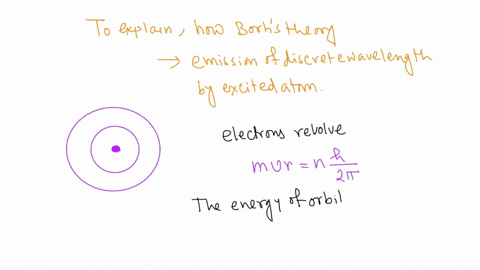 To explain, how Borh's theory
→ emission of discrete wavelength
by excited atom.
electrons revolve
mvr = n h/2π
The energy of orbil